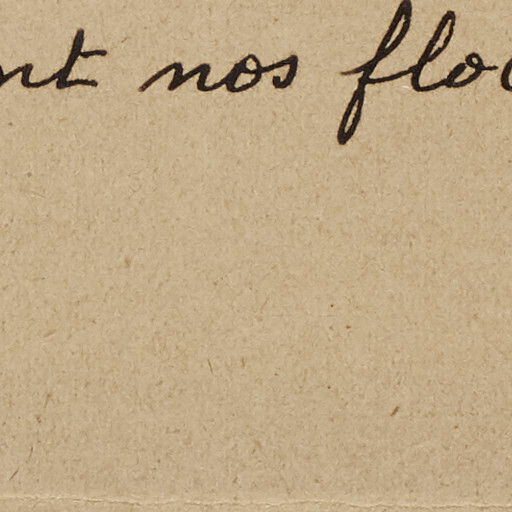 nt nos floc